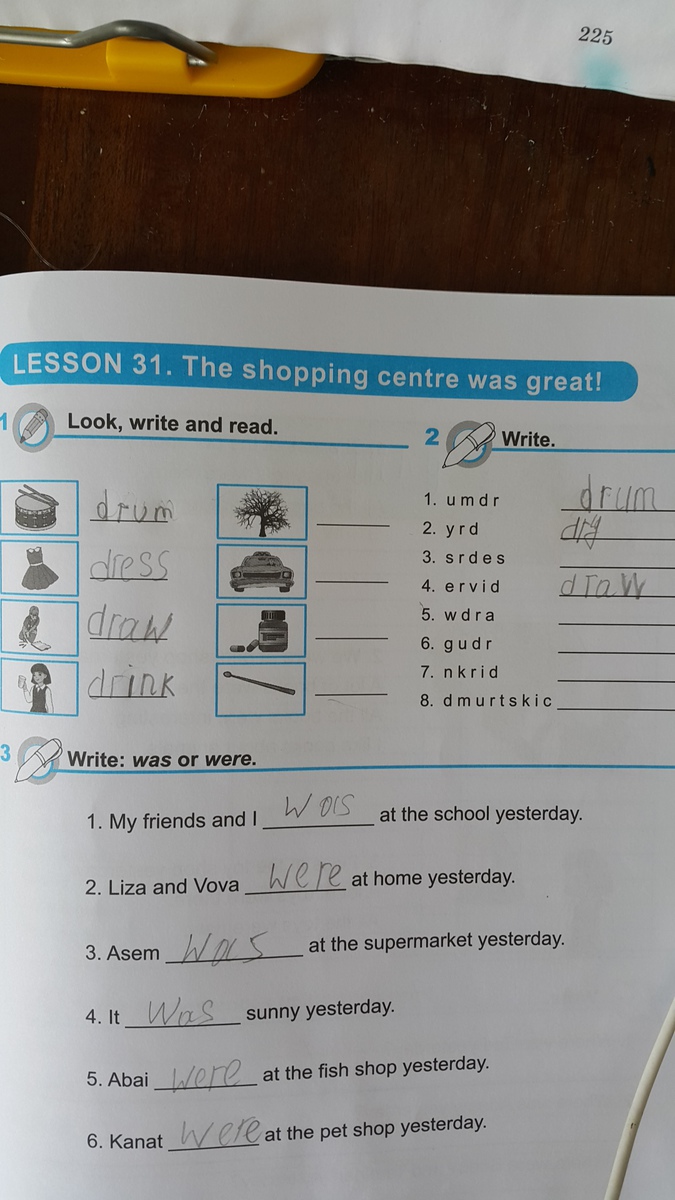 225
LESSON 31. The shopping centre was great!
1 Look, write and read.
drum
dress
draw
drink
2 Write.
1. umdr drum
2. yrd dry
3. srdes
4. ervid draw
5. wdra
6. gudr
7. nkrid
8. dmurtskic
3 Write: was or were.
1. My friends and I was at the school yesterday.
2. Liza and Vova were at home yesterday.
3. Asem was at the supermarket yesterday.
4. It was sunny yesterday.
5. Abai were at the fish shop yesterday.
6. Kanat were at the pet shop yesterday.